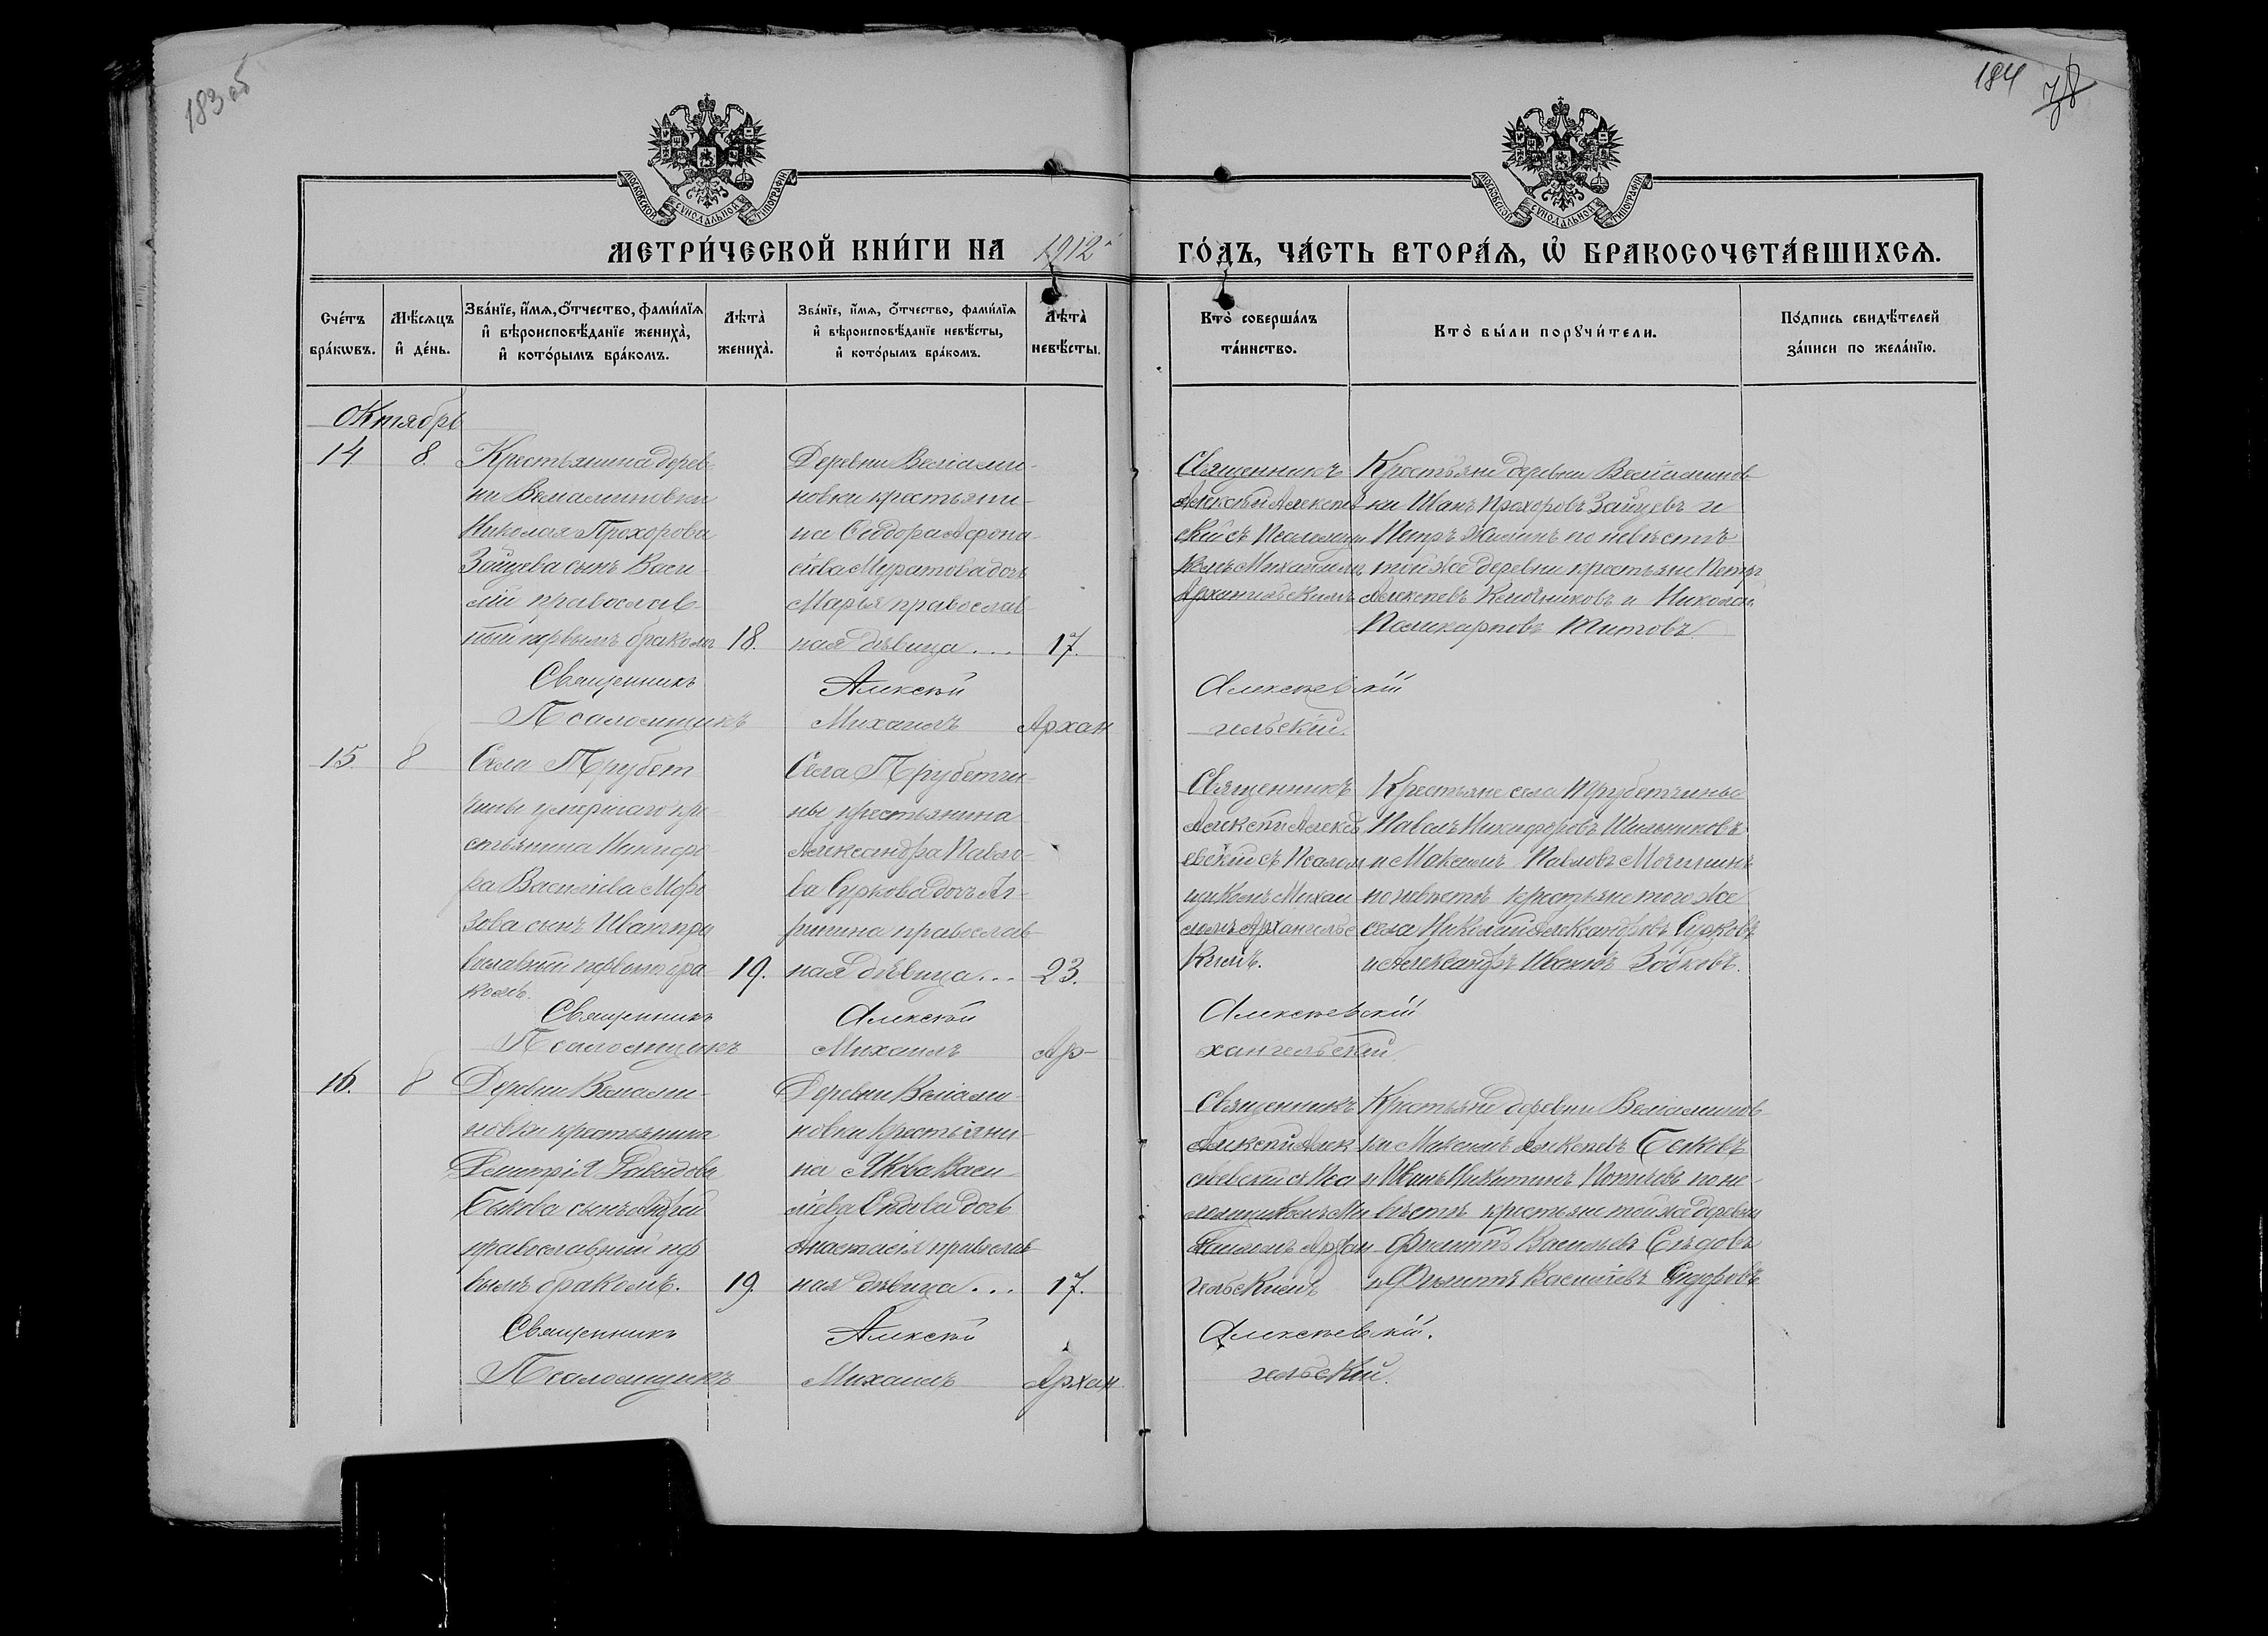 183 об
184
78
МОСКОВСКОЙ СΥНОДАЛЬНОЙ ТИПОГРАФІИ
МОСКОВСКОЙ СΥНОДАЛЬНОЙ ТИПОГРАФІИ
МЕТРИ́ЧЕСКОЙ КНИ́ГИ НА 1912 й ГО́ДЪ, ЧА́СТЬ ВТОРА́Ѧ, Ѽ БРАКОСОЧЕТА́ВШИХСѦ.
Сче́тъ бра́кѡвъ.
Мѣ́сѧцъ и҆ де́нь.
Зва́нїе, и҆́мѧ, ѻ҆́тчество, фами́лїѧ
и҆ вѣроисповѣ́данїе жениха̀,
и҆ кото́рымъ бра́комъ.
Лѣта̀ жениха̀.
Зва́нїе, и҆́мѧ, ѻ҆́тчество, фами́лїѧ
и҆ вѣроисповѣ́данїе невѣ́сты,
и҆ кото́рымъ бра́комъ.
Лѣта̀ невѣ́сты.
Кто̀ соверша́лъ та́инство.
Кто̀ бы́ли порꙋчи́тели.
По́дпись свидѣ́телей за́писи по жела́нїю.
Октябрь
14. 8.
Крестьянина дерев-
ни Веліаминовки
Николая Прохорова
Зайцева сынъ Васи-
лій православ-
ный первымъ бракомъ 18.
Деревни Веліами-
новки крестьяни-
на Сидора Афона-
сіева Муратова дочь
Марья православ-
ная дѣвица... 17.
Священникъ
Алексѣй Алексѣев-
скій съ Псаломщи
комъ Михаиломъ
Архангельскимъ
Крестьяне деревни Веліаминов-
ки Иванъ Прохоровъ Зайцевъ и
Петръ по невѣстѣ
той же деревни крестьяне Петръ
Алексѣевъ Ключниковъ и Николай
Поликарповъ Титовъ.
Священникъ Алексѣй Алексѣевскій
Псаломщикъ Михаилъ Архангельскій.
15. 8
Села Трубет-
чины умершаго кре-
стьянина Никифо-
ра Васильева Моро
зова сынъ Иванъ пра
вославный первымъ бра
комъ. 19.
Села Трубетчи-
ны крестьянина
Александра Павло-
ва Суркова дочь Аг-
рипина православ-
ная дѣвица... 23.
Священникъ
Алексѣй Алексѣ
евскій съ Псалом
щикомъ Михаи
ломъ Архангельс
кимъ.
Крестьяне села Трубетчины
Павелъ Никифоровъ Шильниковъ
и Максимъ Павловъ
по невѣстѣ крестьяне того же
села Николай Александровъ Сурковъ
и Александръ Ивановъ Зобковъ.
Священникъ Алексѣй Алексѣевскій
Псаломщикъ Михаилъ Архангельскій
16. 8
Деревни Веліами-
новки крестьянина
Димитрія Давыдова
Быкова сынъ Андрей
православный пер
вымъ бракомъ. 19.
Деревни Веліами-
новки крестьяни-
на Якова Васи-
лієва Сѣдова дочь
Анастасія православ-
ная дѣвица... 17.
Священникъ
Алексѣй Алек
сѣевскій съ Пса
ломщикомъ Ми
хаиломъ Архан
гельскимъ
Крестьяне деревни Веліаминов-
ки Максимъ Алексѣевъ Быковъ
и Иванъ Никитинъ по не-
вѣстѣ крестьяне той же деревни
Филиппъ Васильевъ Сѣдовъ
и Филиппъ Василіевъ Сидоровъ
Священникъ Алексѣй Алексѣевскій.
Псаломщикъ Михаилъ Архангельскій.